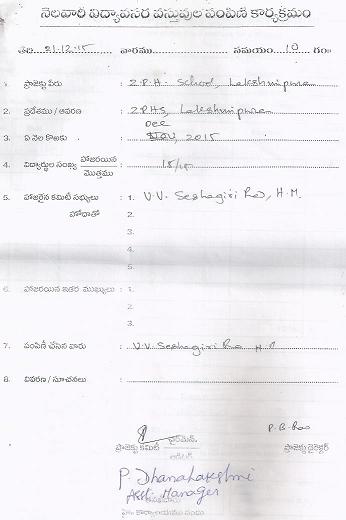 నెలవారీ విద్యావసర వస్తువుల పంపిణీ కార్యక్రమం
తేది 21-12-15 వారము సమయం 10 గం॥
1. ప్రాజెక్టు పేరు : Z.P.H. School, Lakshmipuram
2. ప్రదేశము / ఆవరణ : ZPHS, Lakshmipuram
Dec
3. ఏ నెల కొఱకు : NOV, 2015
4. విద్యార్థుల సంఖ్య హాజరయిన : 15/15
మొత్తము
5. హాజరైన కమిటీ సభ్యులు : 1. V.V. Seshagiri Rao, H.M.
హోదాతో 2.
3.
4.
5.
6. హాజరయిన ఇతర ముఖ్యులు : 1.
2.
3.
7. పంపిణీ చేసిన వారు : V.V. Seshagiri Rao H.M
8. వివరణ / సూచనలు :
P. B. Rao
ప్రాజెక్టు కమిటీ ఛైర్మెన్, ప్రాజెక్టు డైరెక్టర్
ఆడిటర్
P. Dhanalakshmi
Asst. Manager